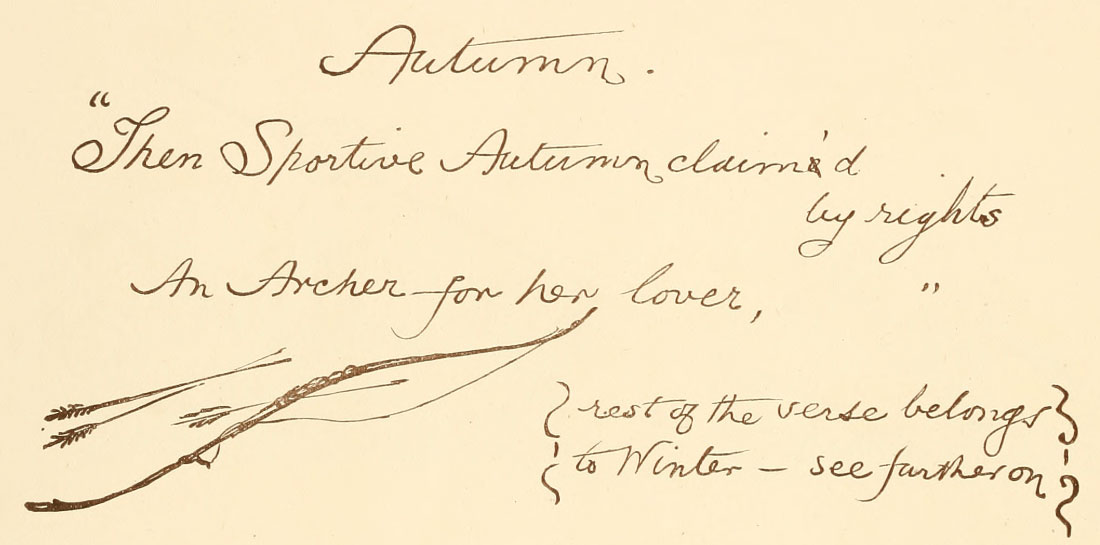 Autumn.
"Then Sportive Autumn claim'd
by rights
An Archer for her lover, "
{ rest of the verse belongs }
{ to Winter – see further on }